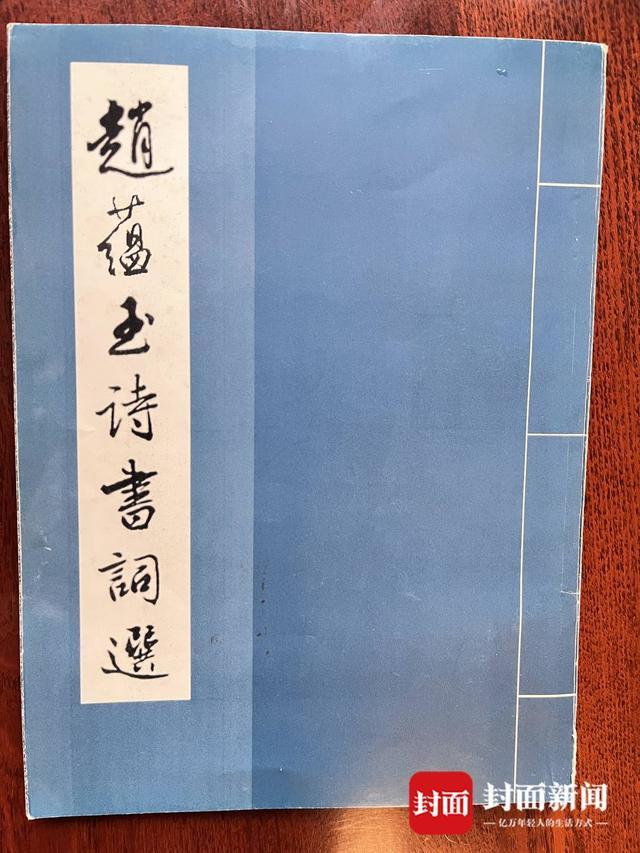 趙蘊玉诗書詞選
封面
封面新闻
亿万年轻人的生活方式